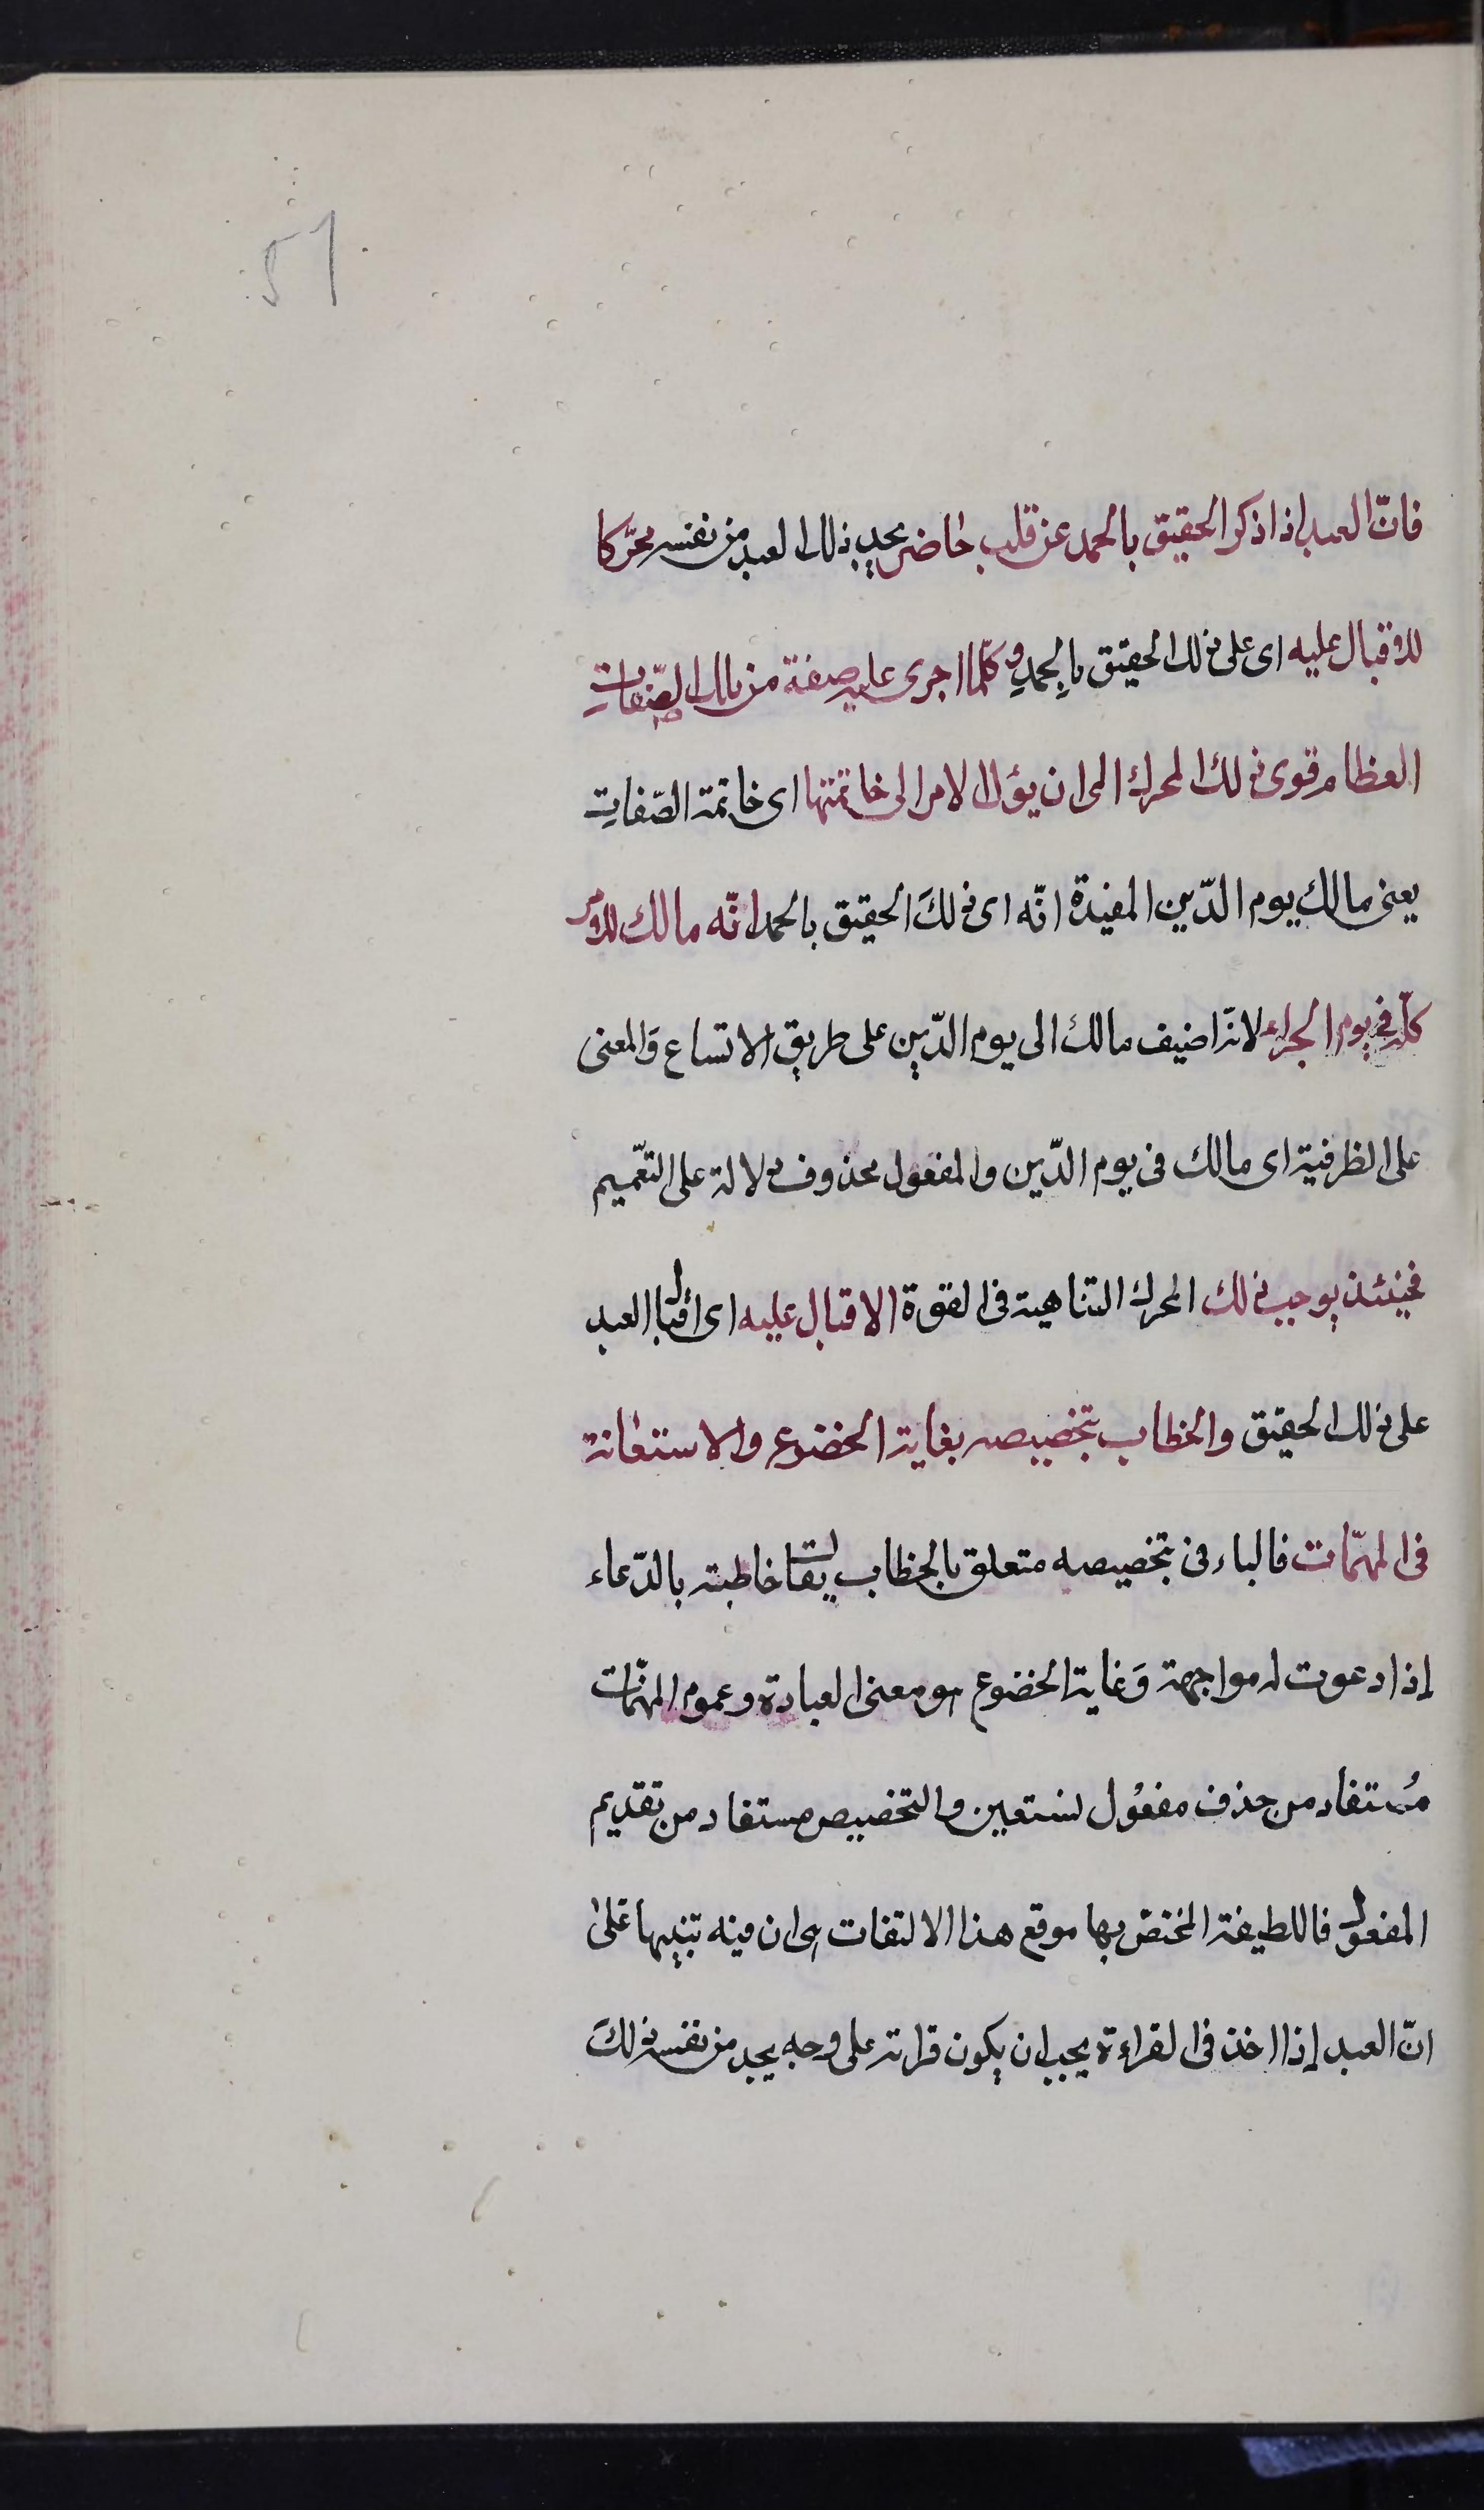 51
فانّ العبد اذا ذكر الحقيق بالحمد عن قلب حاضر يجد ذلك العبد من نفسه محرّكا
للاقبال عليه اى على ذلك الحقيق بالحمدِ وكلّما اجرى عليه صفة من تلك الصّفات
العظام قوى ذلك المحرك الى ان يؤل الامر الى خاتمتها اى خاتمة الصّفات
يعنى مالك يوم الدّين المفيدة انّه اى ذلكَ الحقيق بالحمد انّه مالك للامر
كلّه فى يوم الجزاء لانّه اضيف مالك الى يوم الدّين على طريق الاتساع وَالمعنى
على الظرفية اى مالك فى يوم الدّين والمفعول محذوف دلالة على التعّميم
فحينئذ يوجب ذلك المحرك المتناهية فى القوة الاقبال عليه اى اقبال العبد
على ذلك الحقيق والخطاب بتخصيصه بغاية الخضوع والاستعانة
فى المهمّات فالباء فى بتخصيصه متعلق بالخطاب يقال خاطبته بالدّعاء
إذا دعوت له مواجهة وَغاية الخضوع هو معنى العبادة وعموم المهمّات
مُستفاد من حذف مفعُول نستعين والتخصيص مستفاد من تقديم
المفعول فاللطيفة المختصّ بها موقع هذا الالتفات هى ان فيه تنبيها على
انّ العبد إذا اخذ فى القراءة يجب ان يكون قراءته على وجه يجد من نفسه ذلكَ